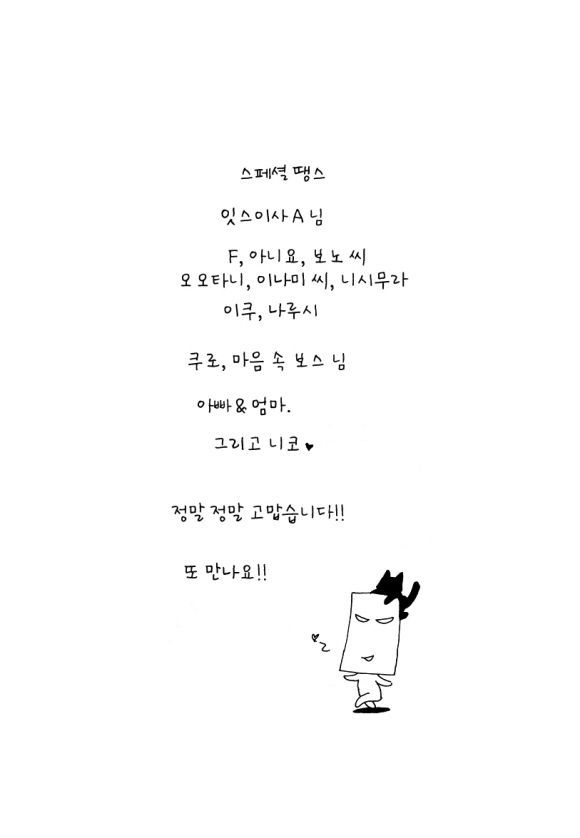 스페셜 땡스
잇스이사 A 님
F, 아니요, 보노 씨
오오타니, 이나미 씨, 니시무라
이쿠, 나루시
쿠로, 마음 속 보스 님
아빠&엄마.
그리고 니코♥
정말 정말 고맙습니다!!
또 만나요!!